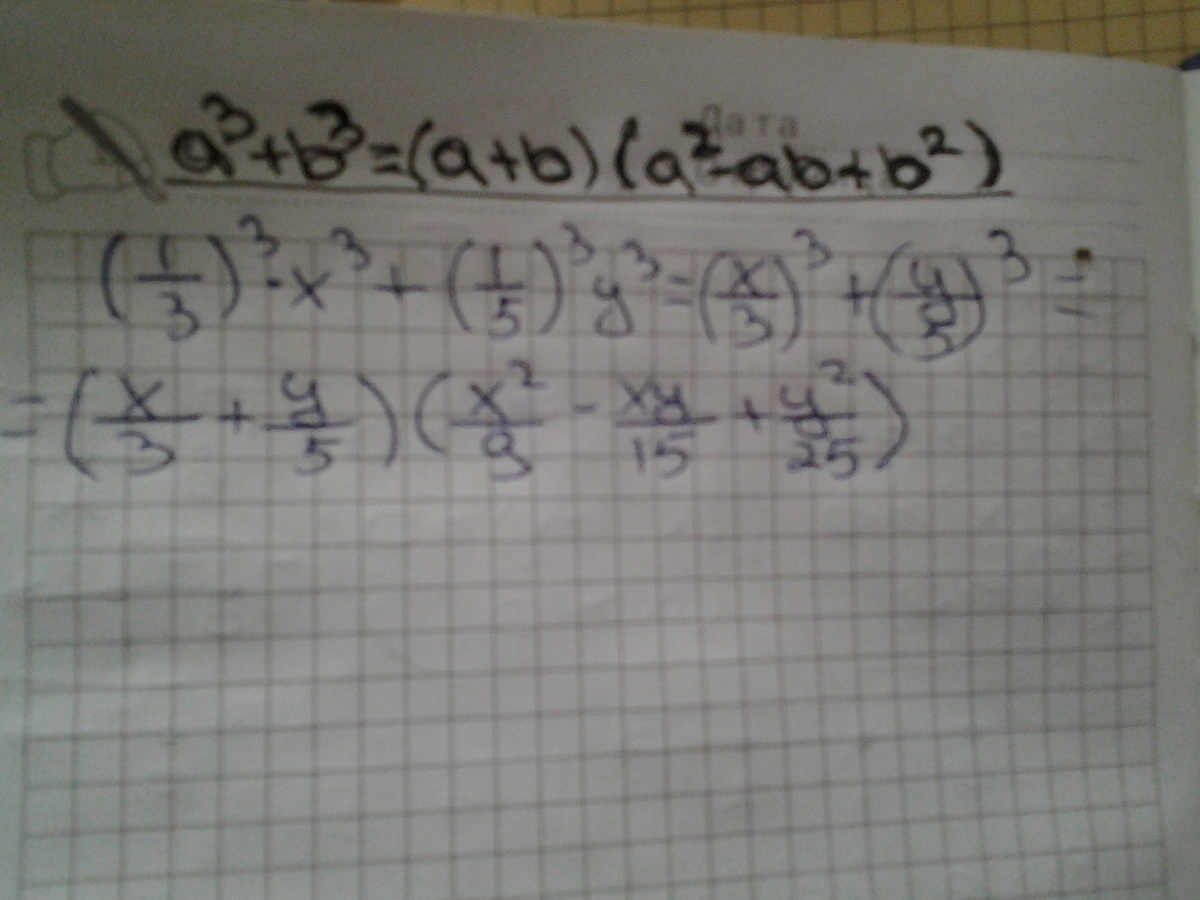 Дата
a³+b³=(a+b)(a²-ab+b²)
(1/3)³·x³+(1/5)³y³=(x/3)³+(y/5)³=
=(x/3+y/5)(x²/9-xy/15+y²/25)